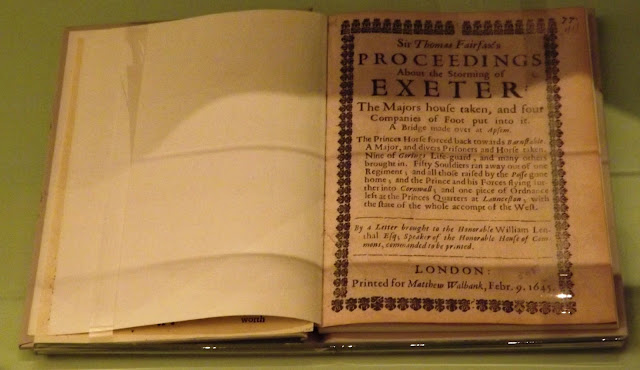 worth
37
Sir Thomas Fairfax's
PROCEEDINGS
About the Storming of
EXETER:
The Majors house taken, and four
Companies of Foot put into it.
A Bridge made over at Apsim.
The Princes Horse forced back towards Barnstable.
A Major, and divers Prisoners and Horse taken.
Nine of Gorings Life-guard, and many others
brought in. Fifty Souldiers ran away out of one
Regiment; and all those raised by the Posse gone
home; and the Prince and his Forces flying fur-
ther into Cornwall; and one piece of Ordnance
left at the Princes Quarters at Launceston; with
the state of the whole accompt of the West.
By a Letter brought to the Honorable William Len-
thal Esq; Speaker of the Honorable House of Com-
mons, commanded to be printed.
LONDON:
Printed for Matthew Walbank, Febr. 9. 1645.